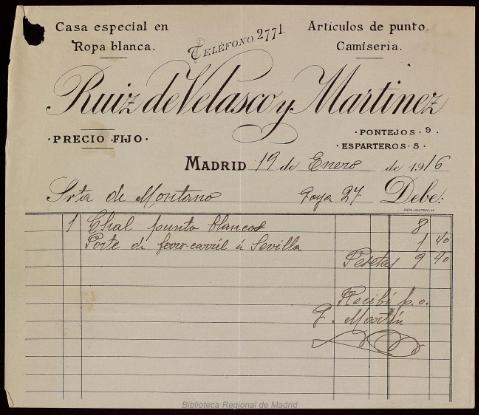 Casa especial en Ropa blanca.
TELÉFONO 2771
Artículos de punto. Camisería.
Ruiz de Velasco y Martinez
· PRECIO FIJO ·
· PONTEJOS · 9 ·
ESPARTEROS · 5 ·
MADRID 19 de Enero de 1916
Srta de Montano Goya 27 Debe:
1 Chal punto blanco 8
Porte de ferro-carril á Sevilla 1 40
Pesetas 9 40
Recibí p.o.
Martín
Biblioteca Regional de Madrid